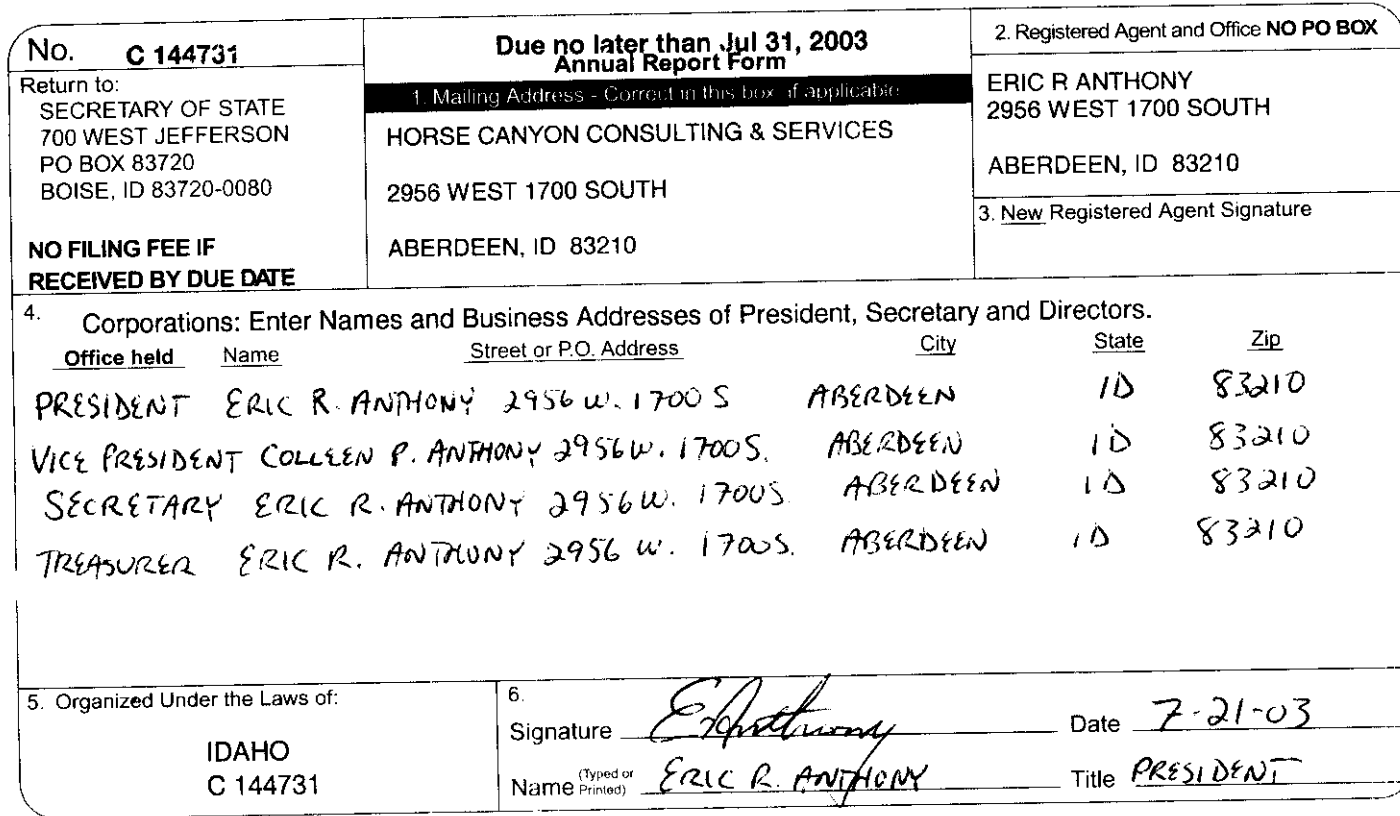 No. C 144731
Return to:
SECRETARY OF STATE
700 WEST JEFFERSON
PO BOX 83720
BOISE, ID 83720-0080
NO FILING FEE IF
RECEIVED BY DUE DATE
Due no later than Jul 31, 2003
Annual Report Form
1. Mailing Address - Correct in this box if applicable
HORSE CANYON CONSULTING & SERVICES
2956 WEST 1700 SOUTH
ABERDEEN, ID 83210
2. Registered Agent and Office NO PO BOX
ERIC R ANTHONY
2956 WEST 1700 SOUTH
ABERDEEN, ID 83210
3. New Registered Agent Signature
4. Corporations: Enter Names and Business Addresses of President, Secretary and Directors.
Office held Name Street or P.O. Address City State Zip
PRESIDENT ERIC R. ANTHONY 2956 W. 1700 S ABERDEEN ID 83210
VICE PRESIDENT COLLEEN P. ANTHONY 2956 W. 1700 S. ABERDEEN ID 83210
SECRETARY ERIC R. ANTHONY 2956 W. 1700 S. ABERDEEN ID 83210
TREASURER ERIC R. ANTHONY 2956 W. 1700 S. ABERDEEN ID 83210
5. Organized Under the Laws of:
IDAHO
C 144731
6.
Signature EAnthony Date 7-21-03
Name (Typed or Printed) ERIC R. ANTHONY Title PRESIDENT